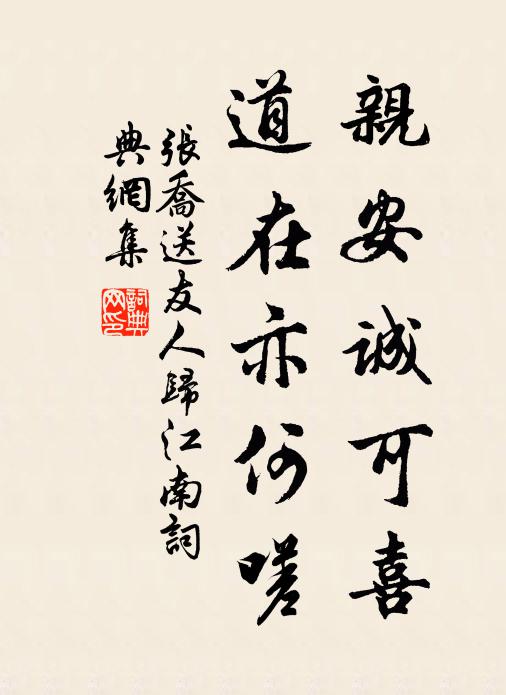 親安誠可喜
道在亦何嗟
張喬送友人歸江南詞
典網集
詞典
网印